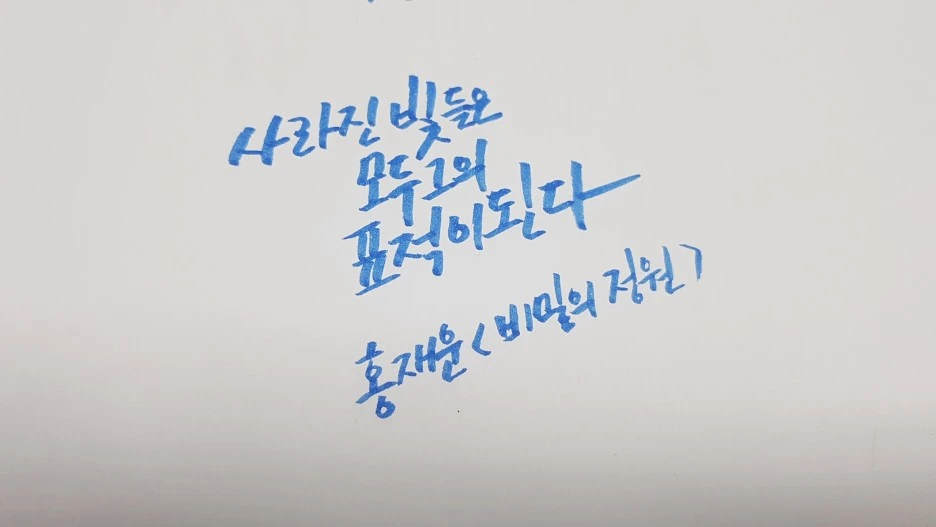 사라진 빛들은
모두 그의
표적이 된다
홍재윤 <비밀의 정원>